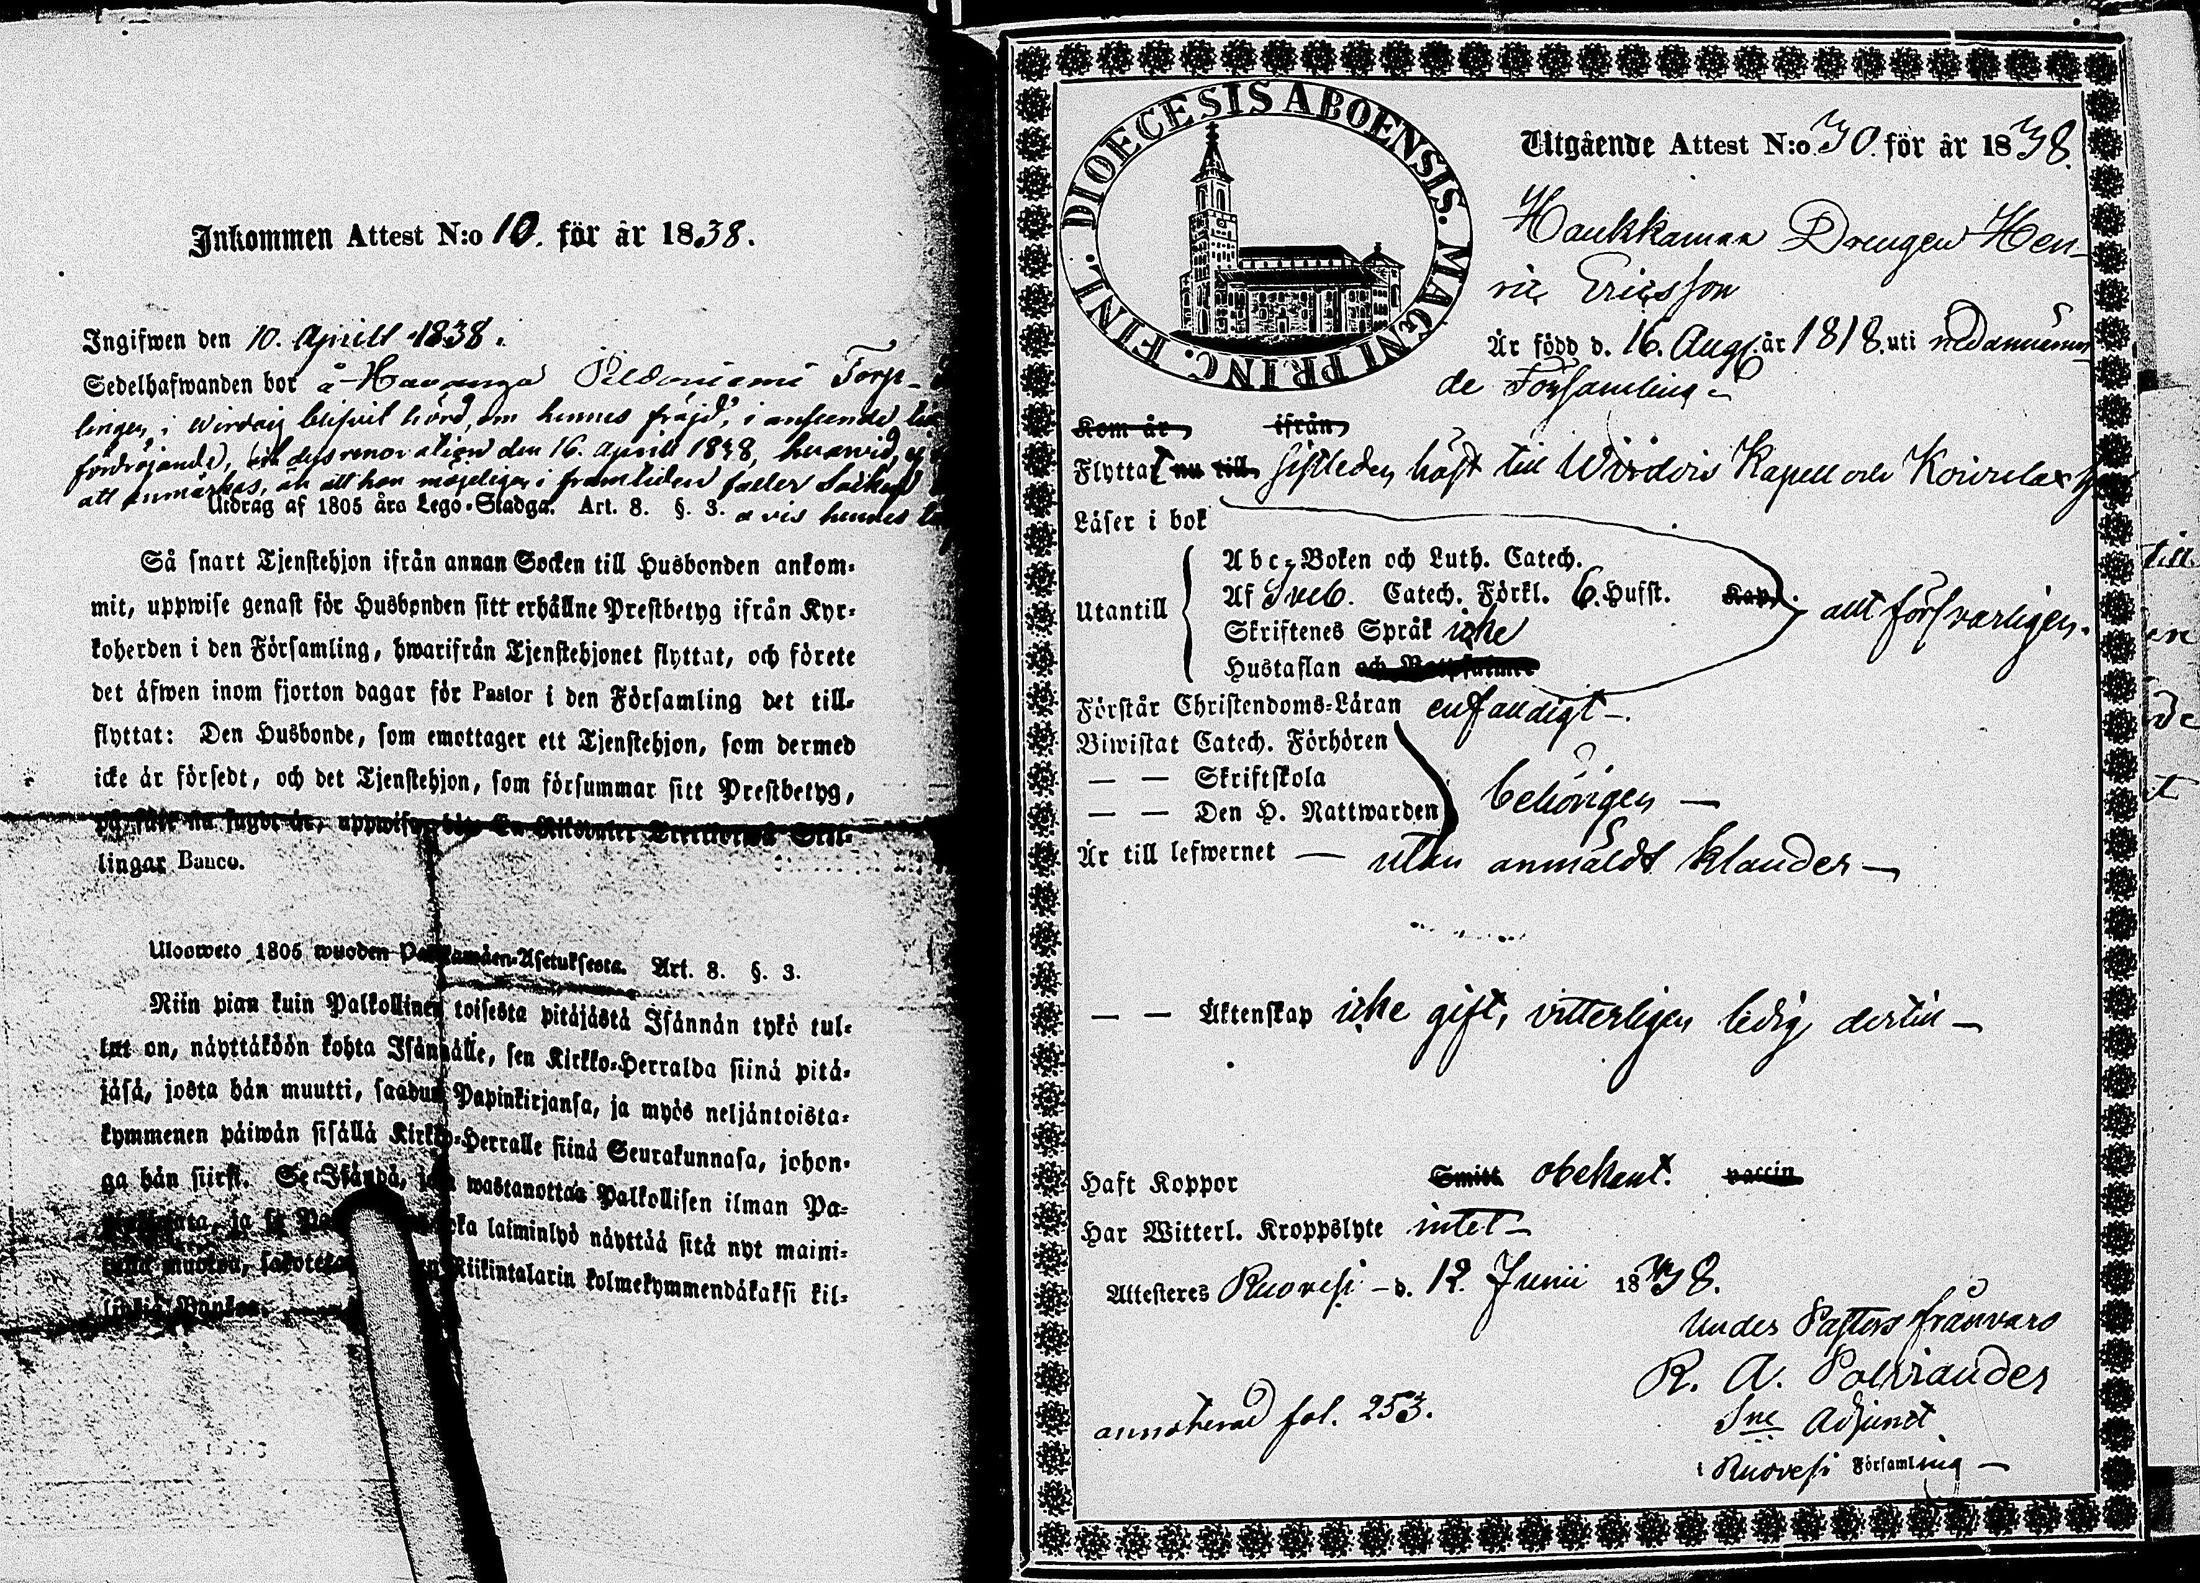 Inkommen Attest N:o 10. för år 1838.
Ingifwen den 10. Aprill 1838.
Sedelhafwanden bor å Torp-
lingen, i blifvit hörd, om hennes fräjd, i anseende
fördröjande, den 16. Aprill 1838, hvarvid
att anmärkas, än att hon möjeligen i framtiden
Utdrag af 1805 års Lego-Stadga. Art. 8. §. 3. hennes
Så snart Tjenstehjon ifrån annan Socken till Husbonden ankom-
mit, uppwise genast för Husbonden sitt erhållne Prestbetyg ifrån Kyr-
koherden i den Församling, hwarifrån Tjenstehjonet flyttat, och förete
det äfwen inom fjorton dagar för Pastor i den Församling det till-
flyttat: Den Husbonde, som emottager ett Tjenstehjon, som dermed
icke är försedt, och det Tjenstehjon, som försummar sitt Prestbetyg,
på sätt nu sagdt är, uppwisa,
lingar Banco.
Ulosweto 1805 wuoden Palkawäen-Asetuksesta. Art. 8. §. 3.
Niin pian kuin Palkollinen toisesta pitäjästä Isännän tykö tul-
lut on, näyttäköön kohta Isännälle, sen Kirkko-Herralda siinä pitä-
jäsä, josta hän muutti, saadun Papinkirjansa, ja myös neljäntoista-
kymmenen päiwän sisällä Kirkko-Herralle siinä Seurakunnasa, johon-
ga hän siirsi. Se Isändä, joka wastanottaa Palkollisen ilman Pa-
ja se laiminlyö näyttää sitä nyt maini-
muotoa, Riikintalarin kolmekymmendäkaksi kil-
DIOECESIS ABOENSIS. MAGNI PRINC. FINL.
Utgående Attest N:o 30. för år 1838.
Haukkamaa Drengen Hen-
ric Ericsson
Är född d. 16. Aug. år 1818. uti nedannämn-
de Församling
Kom år ifrån
Flyttat nu till sistleden höst till Wirdois Kapell och
Läser i bok
Utantill
Abc-Boken och Luth. Catech.
Af Sveb. Catech. Förkl. 6. Hufst. Kap.
Skriftenes Språk icke
Hustaflan
allt försvarligen.
Förstår Christendoms-Läran enfaldigt
Biwistat Catech. Förhören
— — Skriftskola
— — Den H. Nattwarden
behörigen —
Är till lefwernet — utan anmäldt klander —
— — Äktenskap icke gift, vitterligen ledig dertill —
Haft Koppor Smitt obekant. vaccin
Har Witterl. Kroppslyte intet
Attesteres Ruovesi d. 12. Junii 1838.
Under Pastors frånvaro
R. A. Polviander
Sne Adjunct
i Ruovesi Församling —
annoterad fol. 253.